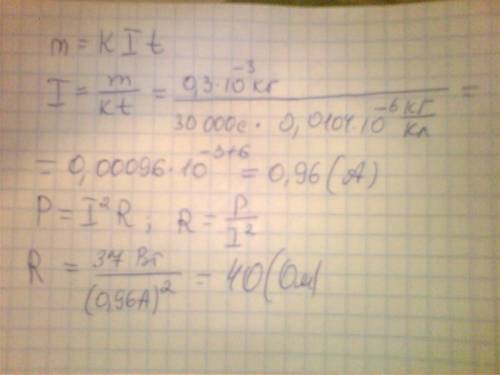 m = K I t
I = m/kt = 0,3·10⁻³ кг / 30 000с · 0,0104·10⁻⁶ кг/кл =
= 0,00096·10⁻³⁺⁶ = 0,96 (А)
P = I²R ; R = P/I²
R = 37 Вт/(0,96А)² = 40 (Ом)